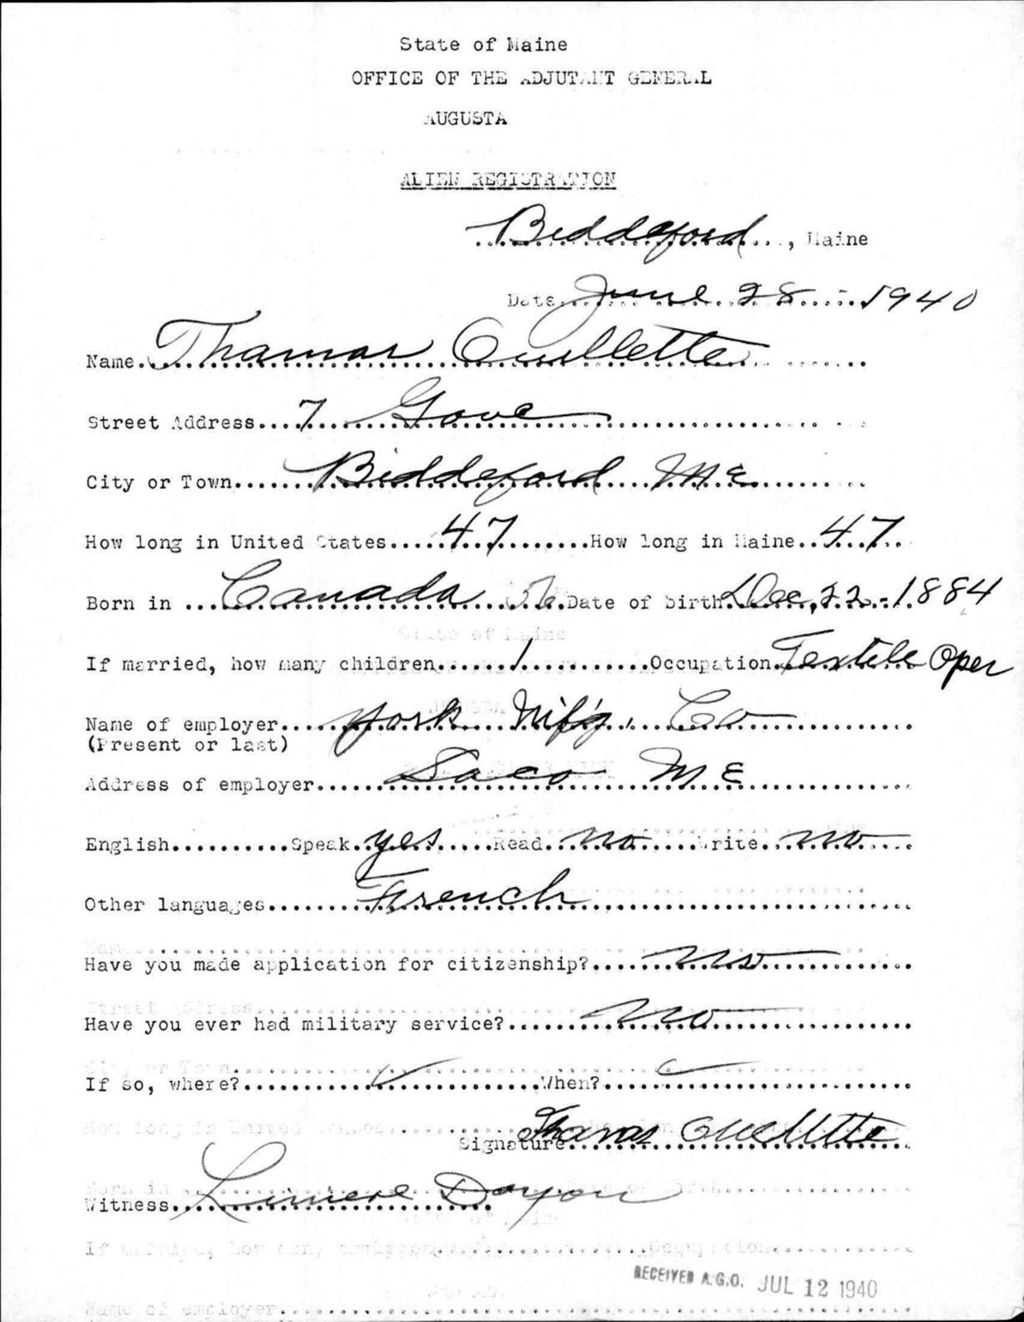 State of Maine
OFFICE OF THE ADJUTANT GENERAL
AUGUSTA
ALIEN REGISTRATION
Biddeford, Maine
Date June 28 1940
Name Thamar Ouellette
Street Address 7 Gove
City or Town Biddeford Me
How long in United States 47 How long in Maine 47
Born in Canada Date of birth Dec, 22 - 1884
If married, how many children 1 Occupation Textile Oper
Name of employer York Mf'g, Co
(Present or last)
Address of employer Saco Me
English Speak yes Read no Write no
Other languages French
Have you made application for citizenship? no
Have you ever had military service? no
If so, where? When?
Signature Thamar Ouellette
Witness Doyon
RECEIVED A.G.O. JUL 12 1940